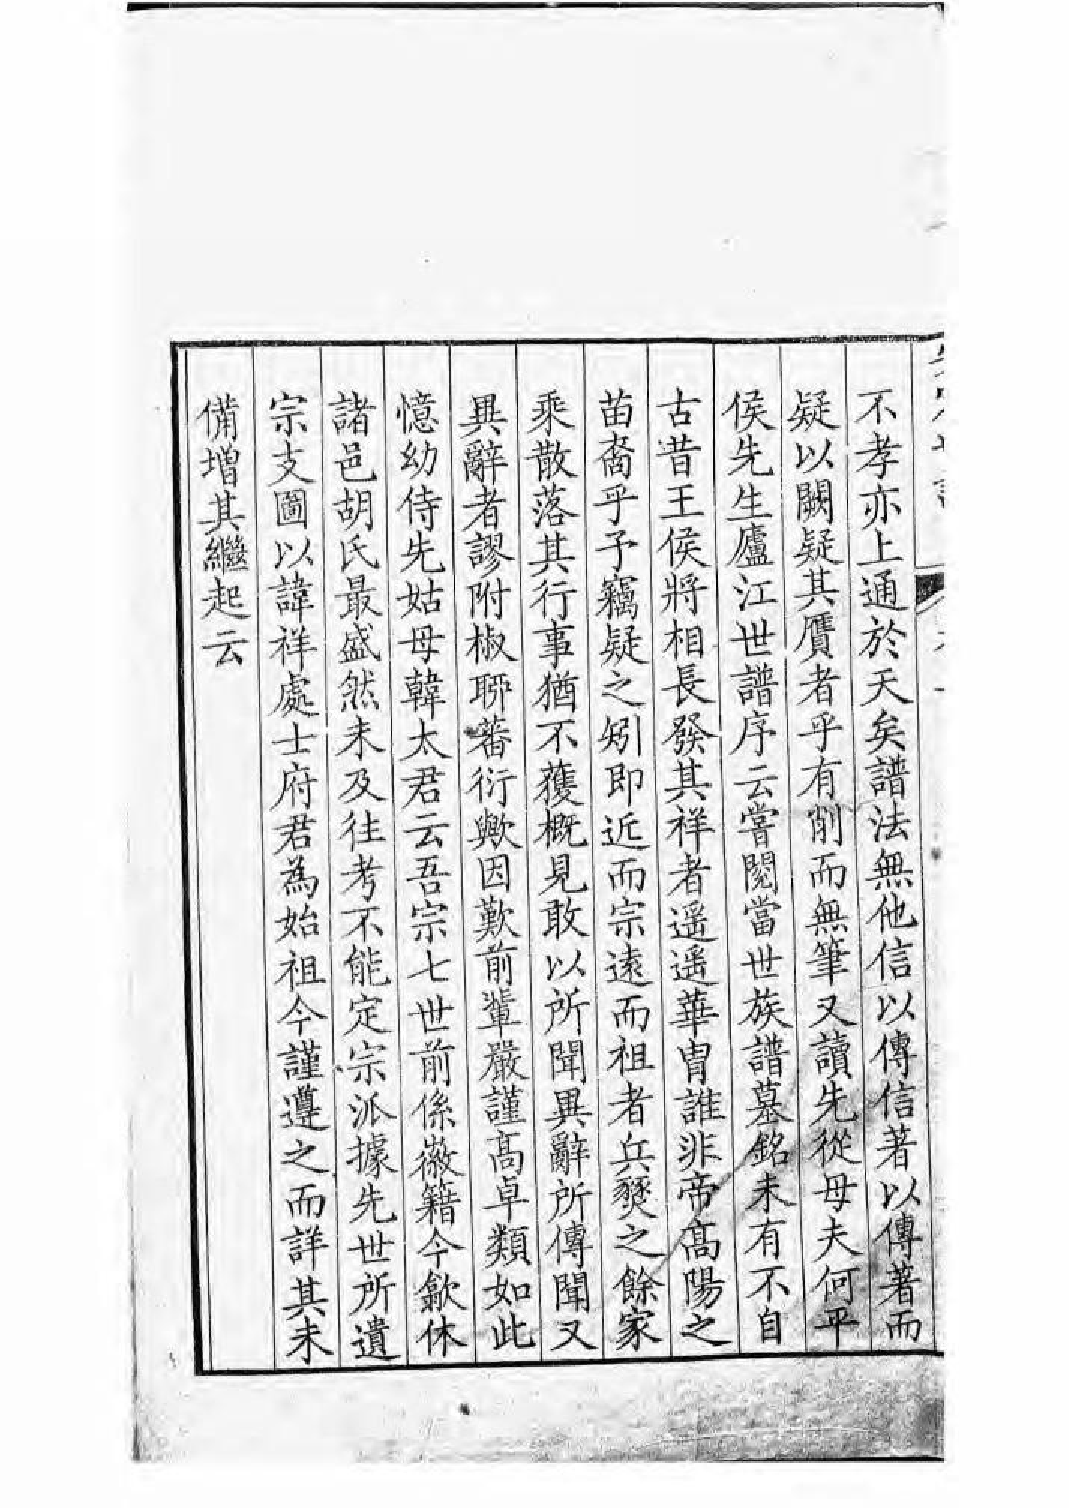 不孝亦上通於天矣譜法無他信以傳信著以傳著而
疑以闕疑其贋者乎有削而無筆又讀先從母夫何平
侯先生廬江世譜序云嘗閱當世族譜墓銘未有不自
古昔王侯將相長發其祥者遥遥華胄誰非帝高陽之
苗裔乎予竊疑之矧即近而宗遠而祖者兵燹之餘家
乘散落其行事猶不獲概見敢以所聞異辭所傳聞又
異辭者謬附椒聊蕃衍歟因歎前輩嚴謹高卓類如此
憶幼侍先姑母韓太君云吾宗七世前係徽籍今歙休
諸邑胡氏最盛然未及往考不能定宗派據先世所遺
宗支圖以諱祥處士府君為始祖今謹遵之而詳其未
備增其繼起云